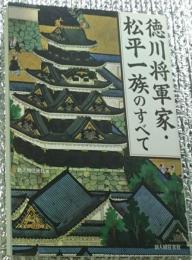 徳川将軍家・
松平一族のすべて
新人物往来社